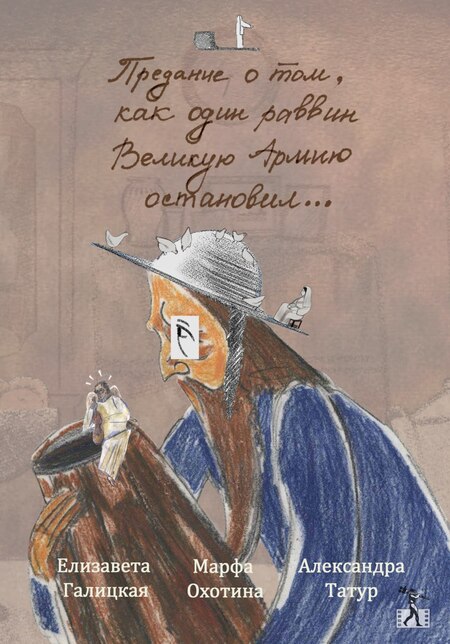 Предание о том,
как один раввин
Великую Армию
остановил...
Елизавета Галицкая
Марфа Охотина
Александра Татур